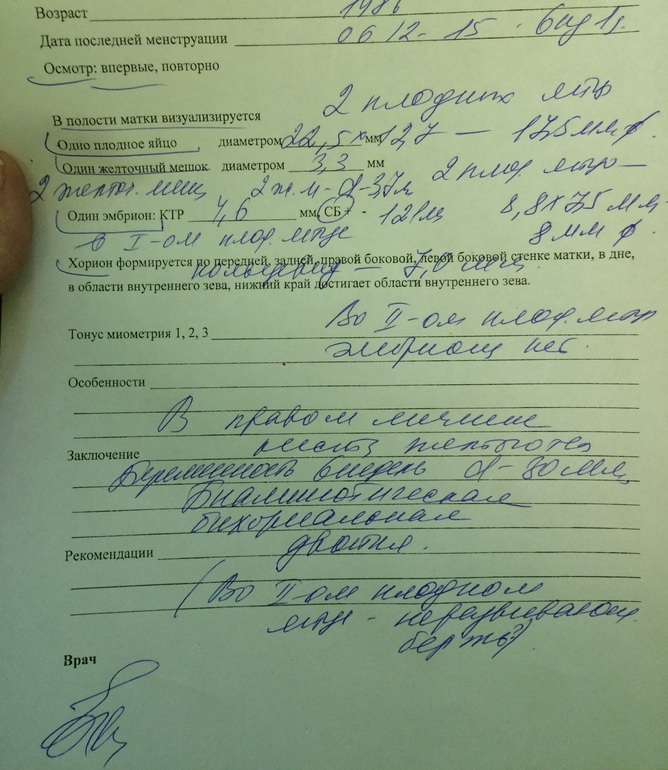 Возраст 1986
Дата последней менструации 06 12 - 15 - 6нд 1д.
Осмотр: впервые, повторно
2 плодных яйца
В полости матки визуализируется
Одно плодное яйцо, диаметром 22,5 х мм 12,7 — 17,5 мм
Один желточный мешок диаметром 3,3 мм 2 плод. яйцо —
2 желт. меш 2 ж.м - d - 3,7м
Один эмбрион: КТР 4,6 мм, СБ+ - 121 8,8 х 7,5 мм
в I-ом плод. яйце 8 мм
Хорион формируется по передней, задней, правой боковой, левой боковой стенке матки, в дне,
кольцевид — 7,0 мм
в области внутреннего зева, нижний край достигает области внутреннего зева.
Во II-ом плод. яйце
Тонус миометрия 1, 2, 3
эмбриона нет.
Особенности
В правом яичнике
киста желт. тела
Заключение
Беременность 6 недель d - 30 мм
Биамниотическая
бихориальная
двойня.
Рекомендации
(Во II-ом плодном
яйце - неразвивающ.
бер-ть?)
Врач